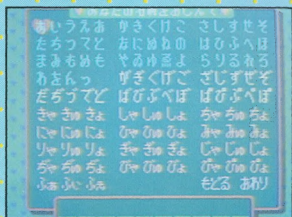 あいうえお かきくけこ さしすせそ
たちつてと なにぬねの はひふへほ
まみむめも やゐゆゑよ らりるれろ
わをんっ がぎぐげご ざじずぜぞ
だぢづでど ばびぶべぼ ぱぴぷぺぽ
きゃ きゅ きょ しゃ しゅ しょ ちゃ ちゅ ちょ
にゃ にゅ にょ ひゃ ひゅ ひょ みゃ みゅ みょ
りゃ りゅ りょ ぎゃ ぎゅ ぎょ じゃ じゅ じょ
ぢゃ ぢゅ ぢょ びゃ びゅ びょ ぴゃ ぴゅ ぴょ
もどる おわり